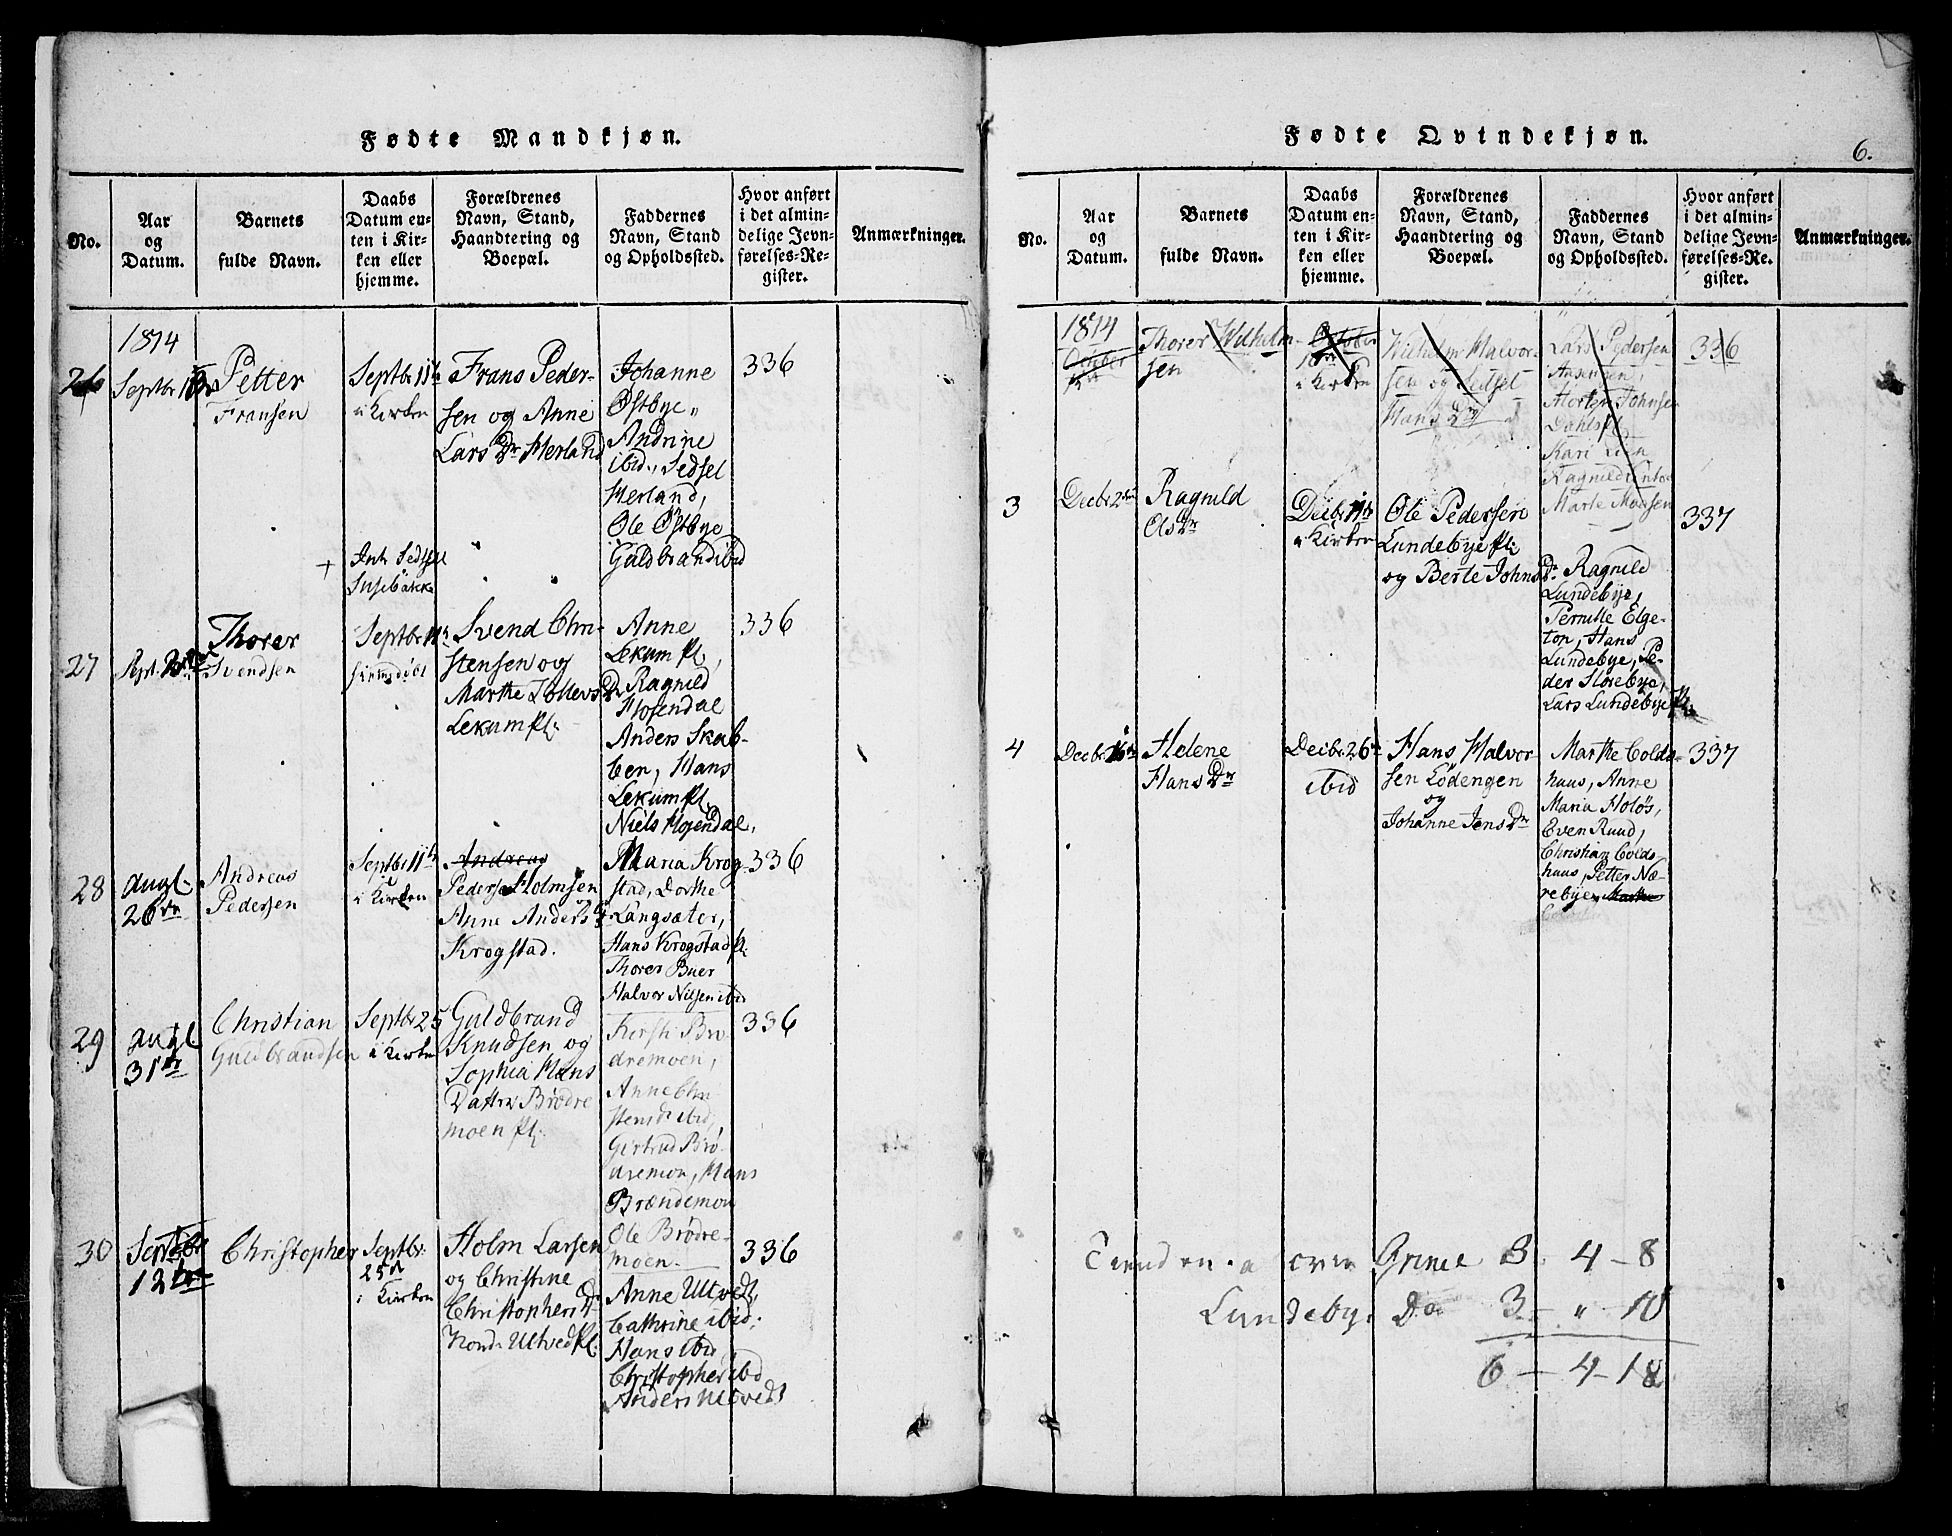 Fødte Mandkjøn.
No.
Aar
og
Datum.
Barnets
fulde Navn.
Daabs
Datum en-
ten i Kir-
ken eller
hjemme.
Forældrenes
Navn, Stand,
Haandtering og
Boepæl.
Faddernes
Navn, Stand
og Opholdssted.
Hvor anført
i det almin-
delige Jevn-
førelses-Re-
gister.
Anmærkninger.
1814
26
Petter
Fransen
Septbr 11te
i Kirken
Frans Peder-
sen og Anne
Lars Dr Herland
Johanne
Østbye,
Andrine
ibid., Sedsel
Herland,
Ole Østbye
Guldbrand ibid
336
27
Thorer
Svendsen
Septbr 11te
Svend Chri-
stensen og
Marthe Tollevs Dr
Lekum Pl.
Anne
Lekum Pl,
Ragnild
Mosendal
Anders Skab-
ben, Hans
Lekum Pl,
Niels Mosendal,
336
28
Augl.
26de
Andreas
Pedersen
Septbr 11te
i Kirken
Andreas
Peder Holmsen
Anne Anders Dr
Krogstad.
Maria Krog-
stad, Dorthe
Langsæter,
Hans Krogstad Pl
Thorer Buer
Halvor Nilsen ibid
336
29
Augl
31te
Christian
Guldbrandsen
Septbr 25
i Kirken
Guldbrand
Knudsen og
Sophia Hans
Datter Brødre
moen Pl.
Kersti Brø-
dremoen,
Anne Chri-
stens Dr ibid,
Girtrud Brø-
dremon, Hans
Brændemon
Ole Brødre-
moen.
336
30
Septbr
12te
Christopher
Septbr.
25de
i Kirken
Holm Larsen
og Christine
Christophers Dr
Nord. Utved Pl.
Anne Utvedt,
Cathrine ibid.
Hans ibid,
Christopher ibid
Anders Utvedt
336
Fødte Qvindekjøn.
6.
No.
Aar
og
Datum.
Barnets
fulde Navn.
Daabs
Datum en-
ten i Kir-
ken eller
hjemme.
Forældrenes
Navn, Stand,
Haandtering og
Boepæl.
Faddernes
Navn, Stand
og Opholdssted.
Hvor anført
i det almin-
delige Jevn-
førelses-Re-
gister.
Anmærkninger.
1814
October
Thorer Wilhelm-
sen
October
i Kirken
Wilhelm Halvor-
sen og Sedsel
Hans Dr
Lars Pedersen
Morten Johnsen
Dahlsel
Kari Lien
Marte Madsen
336
3
Decbr 2den
Ragnild
Ols Dr
Decbr 11te
i Kirken
Ole Pedersen
Lundebye Pl.
og Berte Johns Dr
Ragnild
Lundebye,
Pernille Elge-
ton, Hans
Lundebye, Pe-
der Storebye,
Lars Lundebye Pl.
337
4
Decbr 16de
Helene
Hans Dr
Decbr 26de
ibid
Hans Halvor
sen Lödengen
og
Johanne Jens Dr
Marthe Colds-
huus, Anne
Maria Holøs,
Even Ruud,
Christian Colds
huus, Petter Næ-
rebye, Marthe
337
3. 4-8
Lundeby. Do 3- " 10
6-4-18